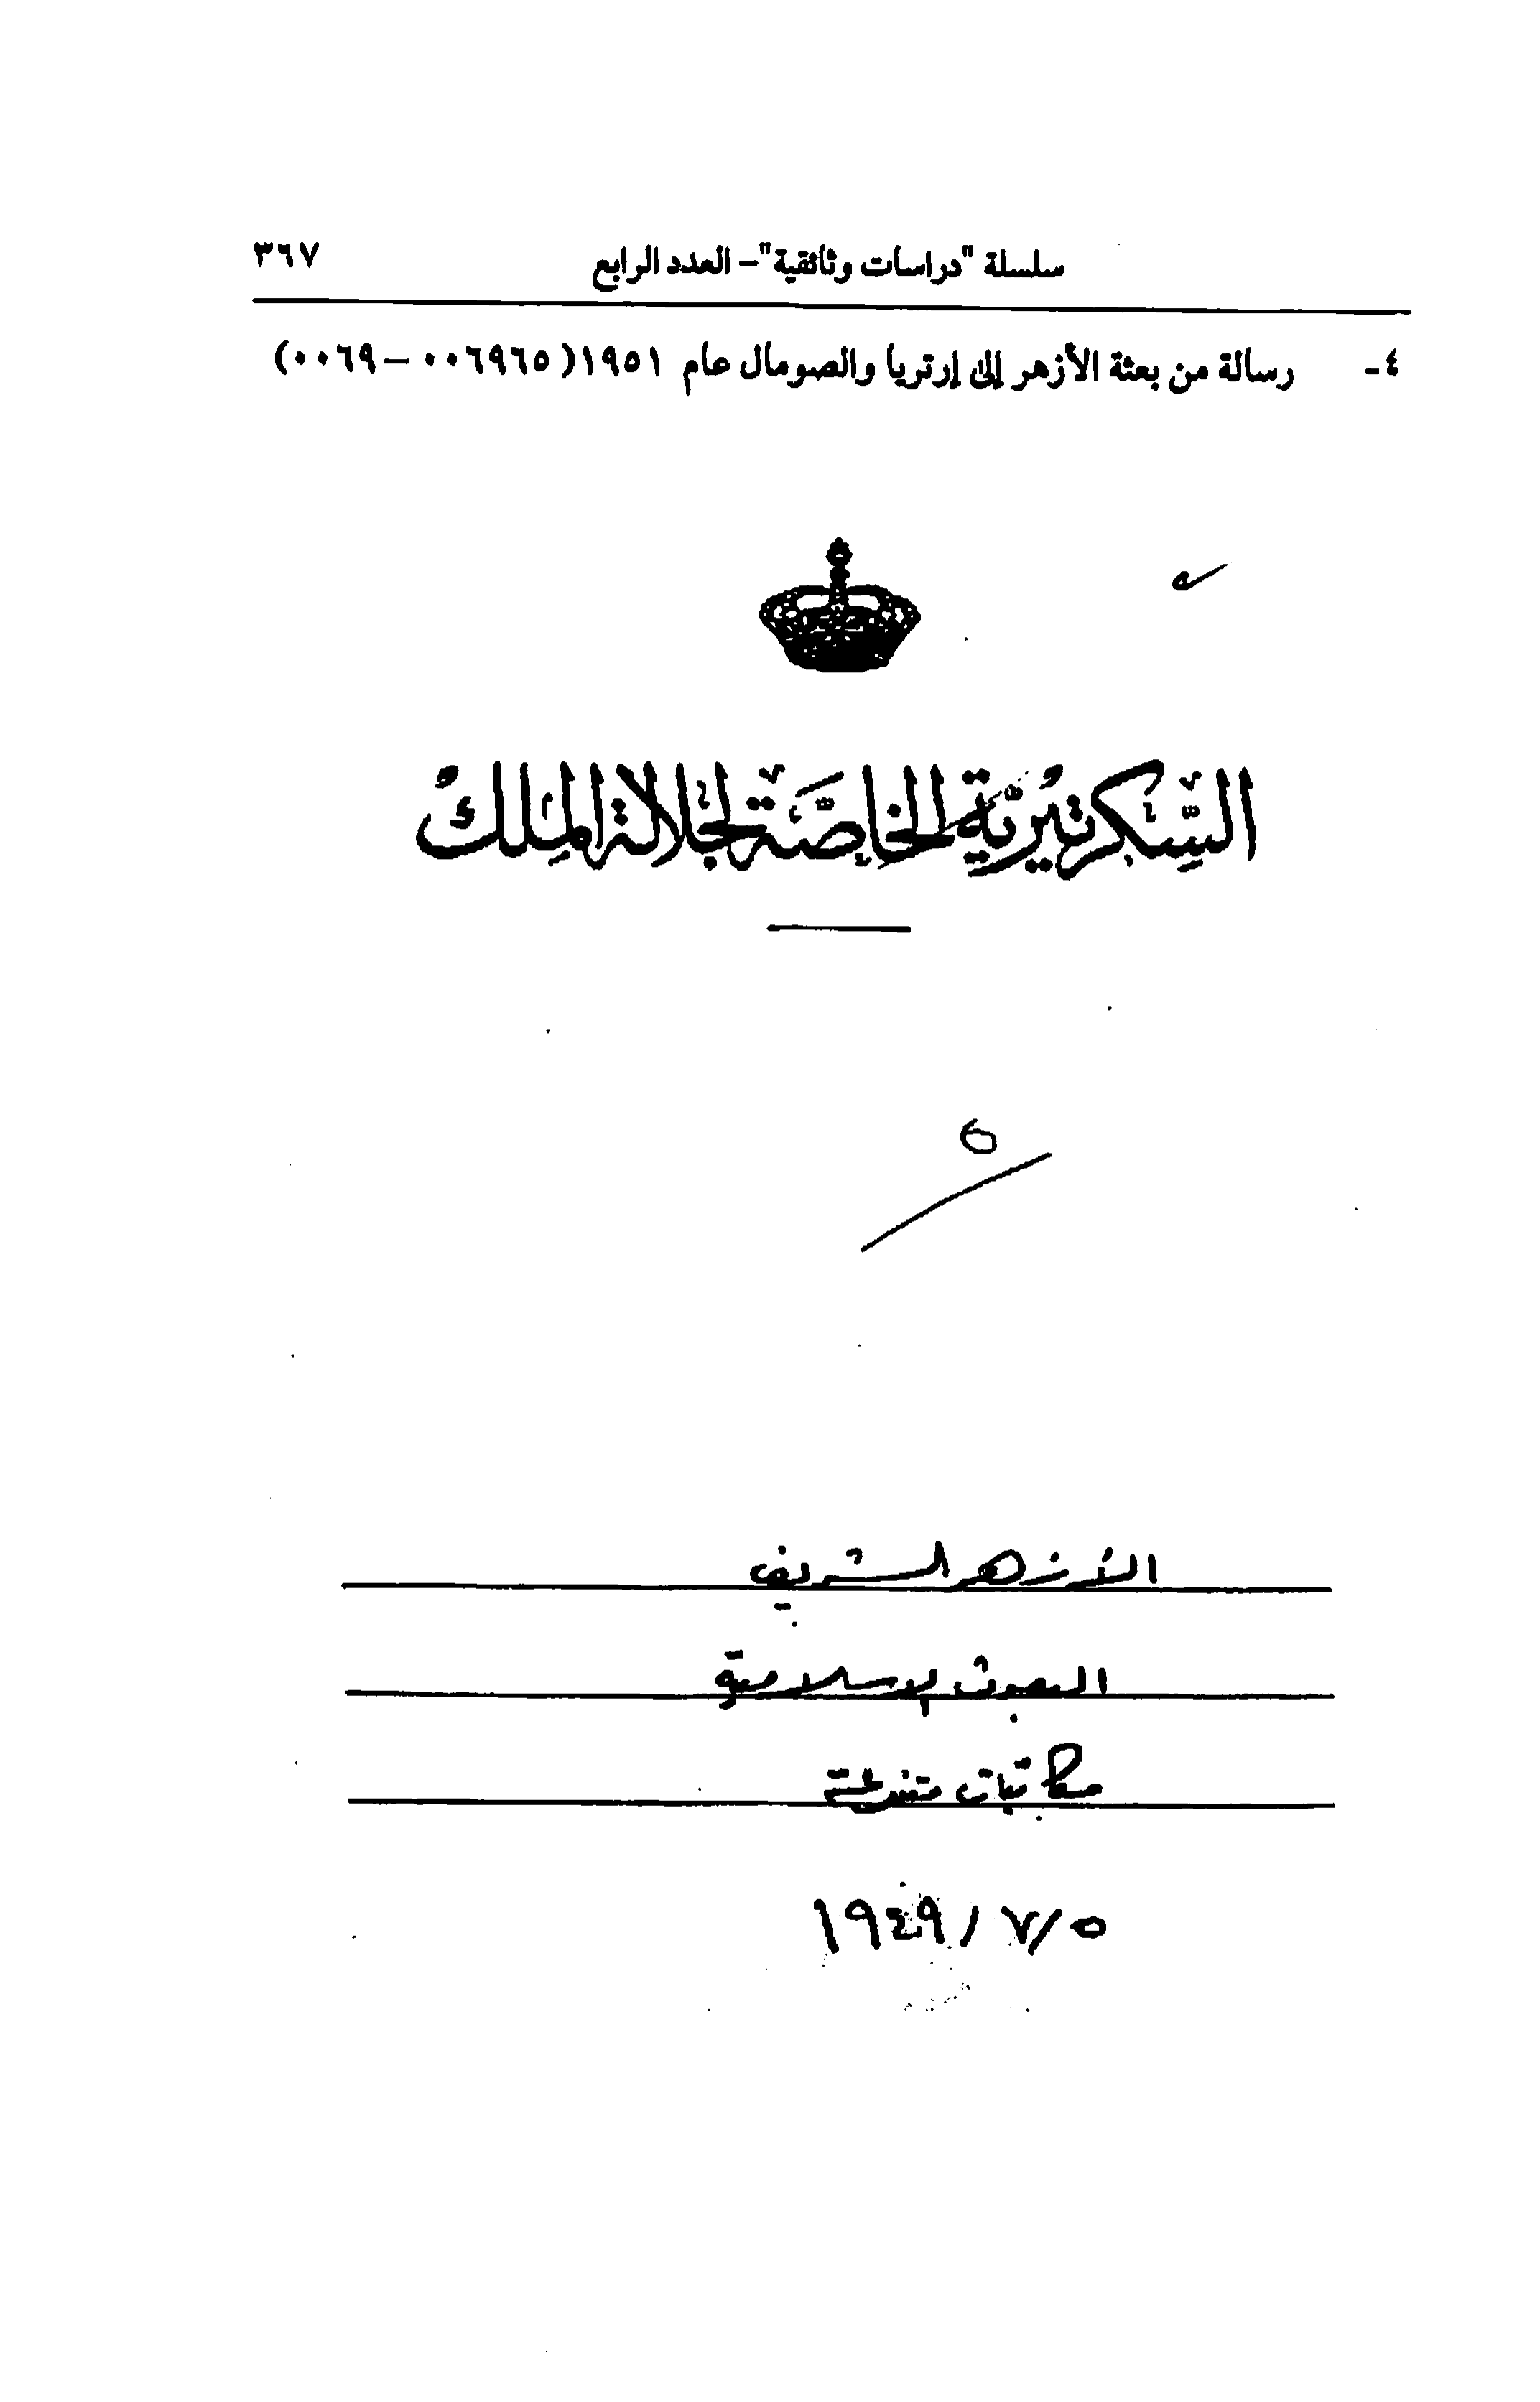 سلسلة "دراسات وثائقية" – العدد الرابع ٣٦٧
٤- رسالة من بعثة الأزهر إلى إرتريا والصومال عام ١٩٥١ (٠٠٦٩٦٥ – ٠٠٦٩)
السكرتيرية الخاصة لجلالة الملك
٥
الأزهر الشريف
البعوث الإسلامية
مكاتبات متنوعة
٥/٧/١٩٤٩